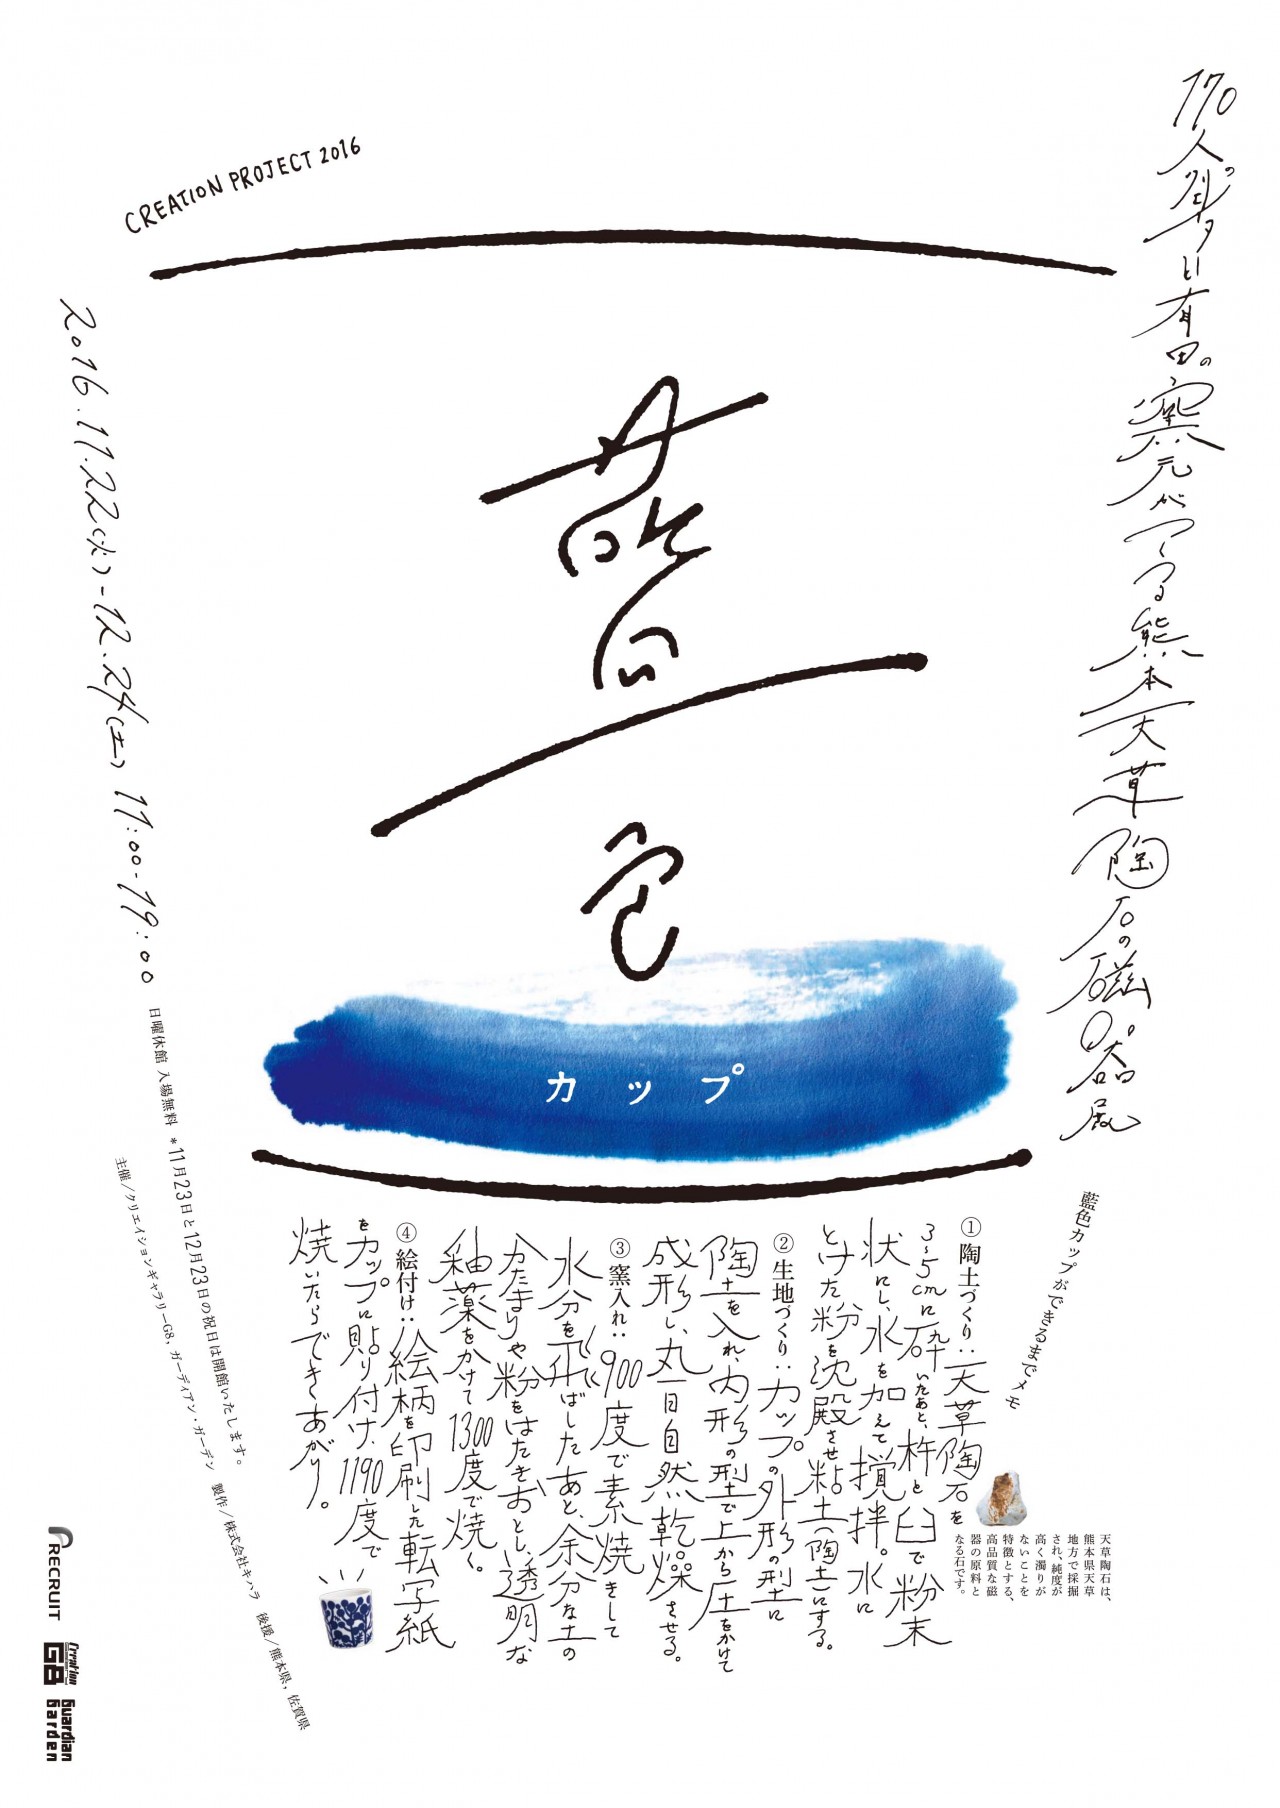 CREATION PROJECT 2016
170人のクリエイターと有田の窯元がつくる熊本天草陶石の磁器展
藍色
カップ
2016.11.22(火)-12.24(土) 11:00-19:00
日曜休館 入場無料 *11月23日と12月23日の祝日は開館いたします。
主催/クリエイションギャラリーG8, ガーディアン・ガーデン 製作/株式会社キハラ 後援/熊本県, 佐賀県
藍色カップができるまでメモ
①陶土づくり:天草陶石を
3~5cmに砕いたあと、杵と臼で粉末
状にし、水を加えて撹拌。水に
とけた粉を沈殿させ粘土(陶土)にする。
②生地づくり:カップの外形の型に
陶土を入れ、内形の型で上から圧をかけて
成形し、丸一日自然乾燥させる。
③窯入れ:900度で素焼きして
水分を飛ばしたあと、余分な土の
かたまりや粉をはたきおとし、透明な
釉薬をかけて1300度で焼く。
④絵付け:絵柄を印刷した転写紙
をカップに貼り付け、1190度で
焼いたらできあがり。
天草陶石は、
熊本県天草
地方で採掘
され、純度が
高く濁りが
ないことを
特徴とする、
高品質な磁
器の原料と
なる石です。
RECRUIT
Creation
G8
Guardian
Garden